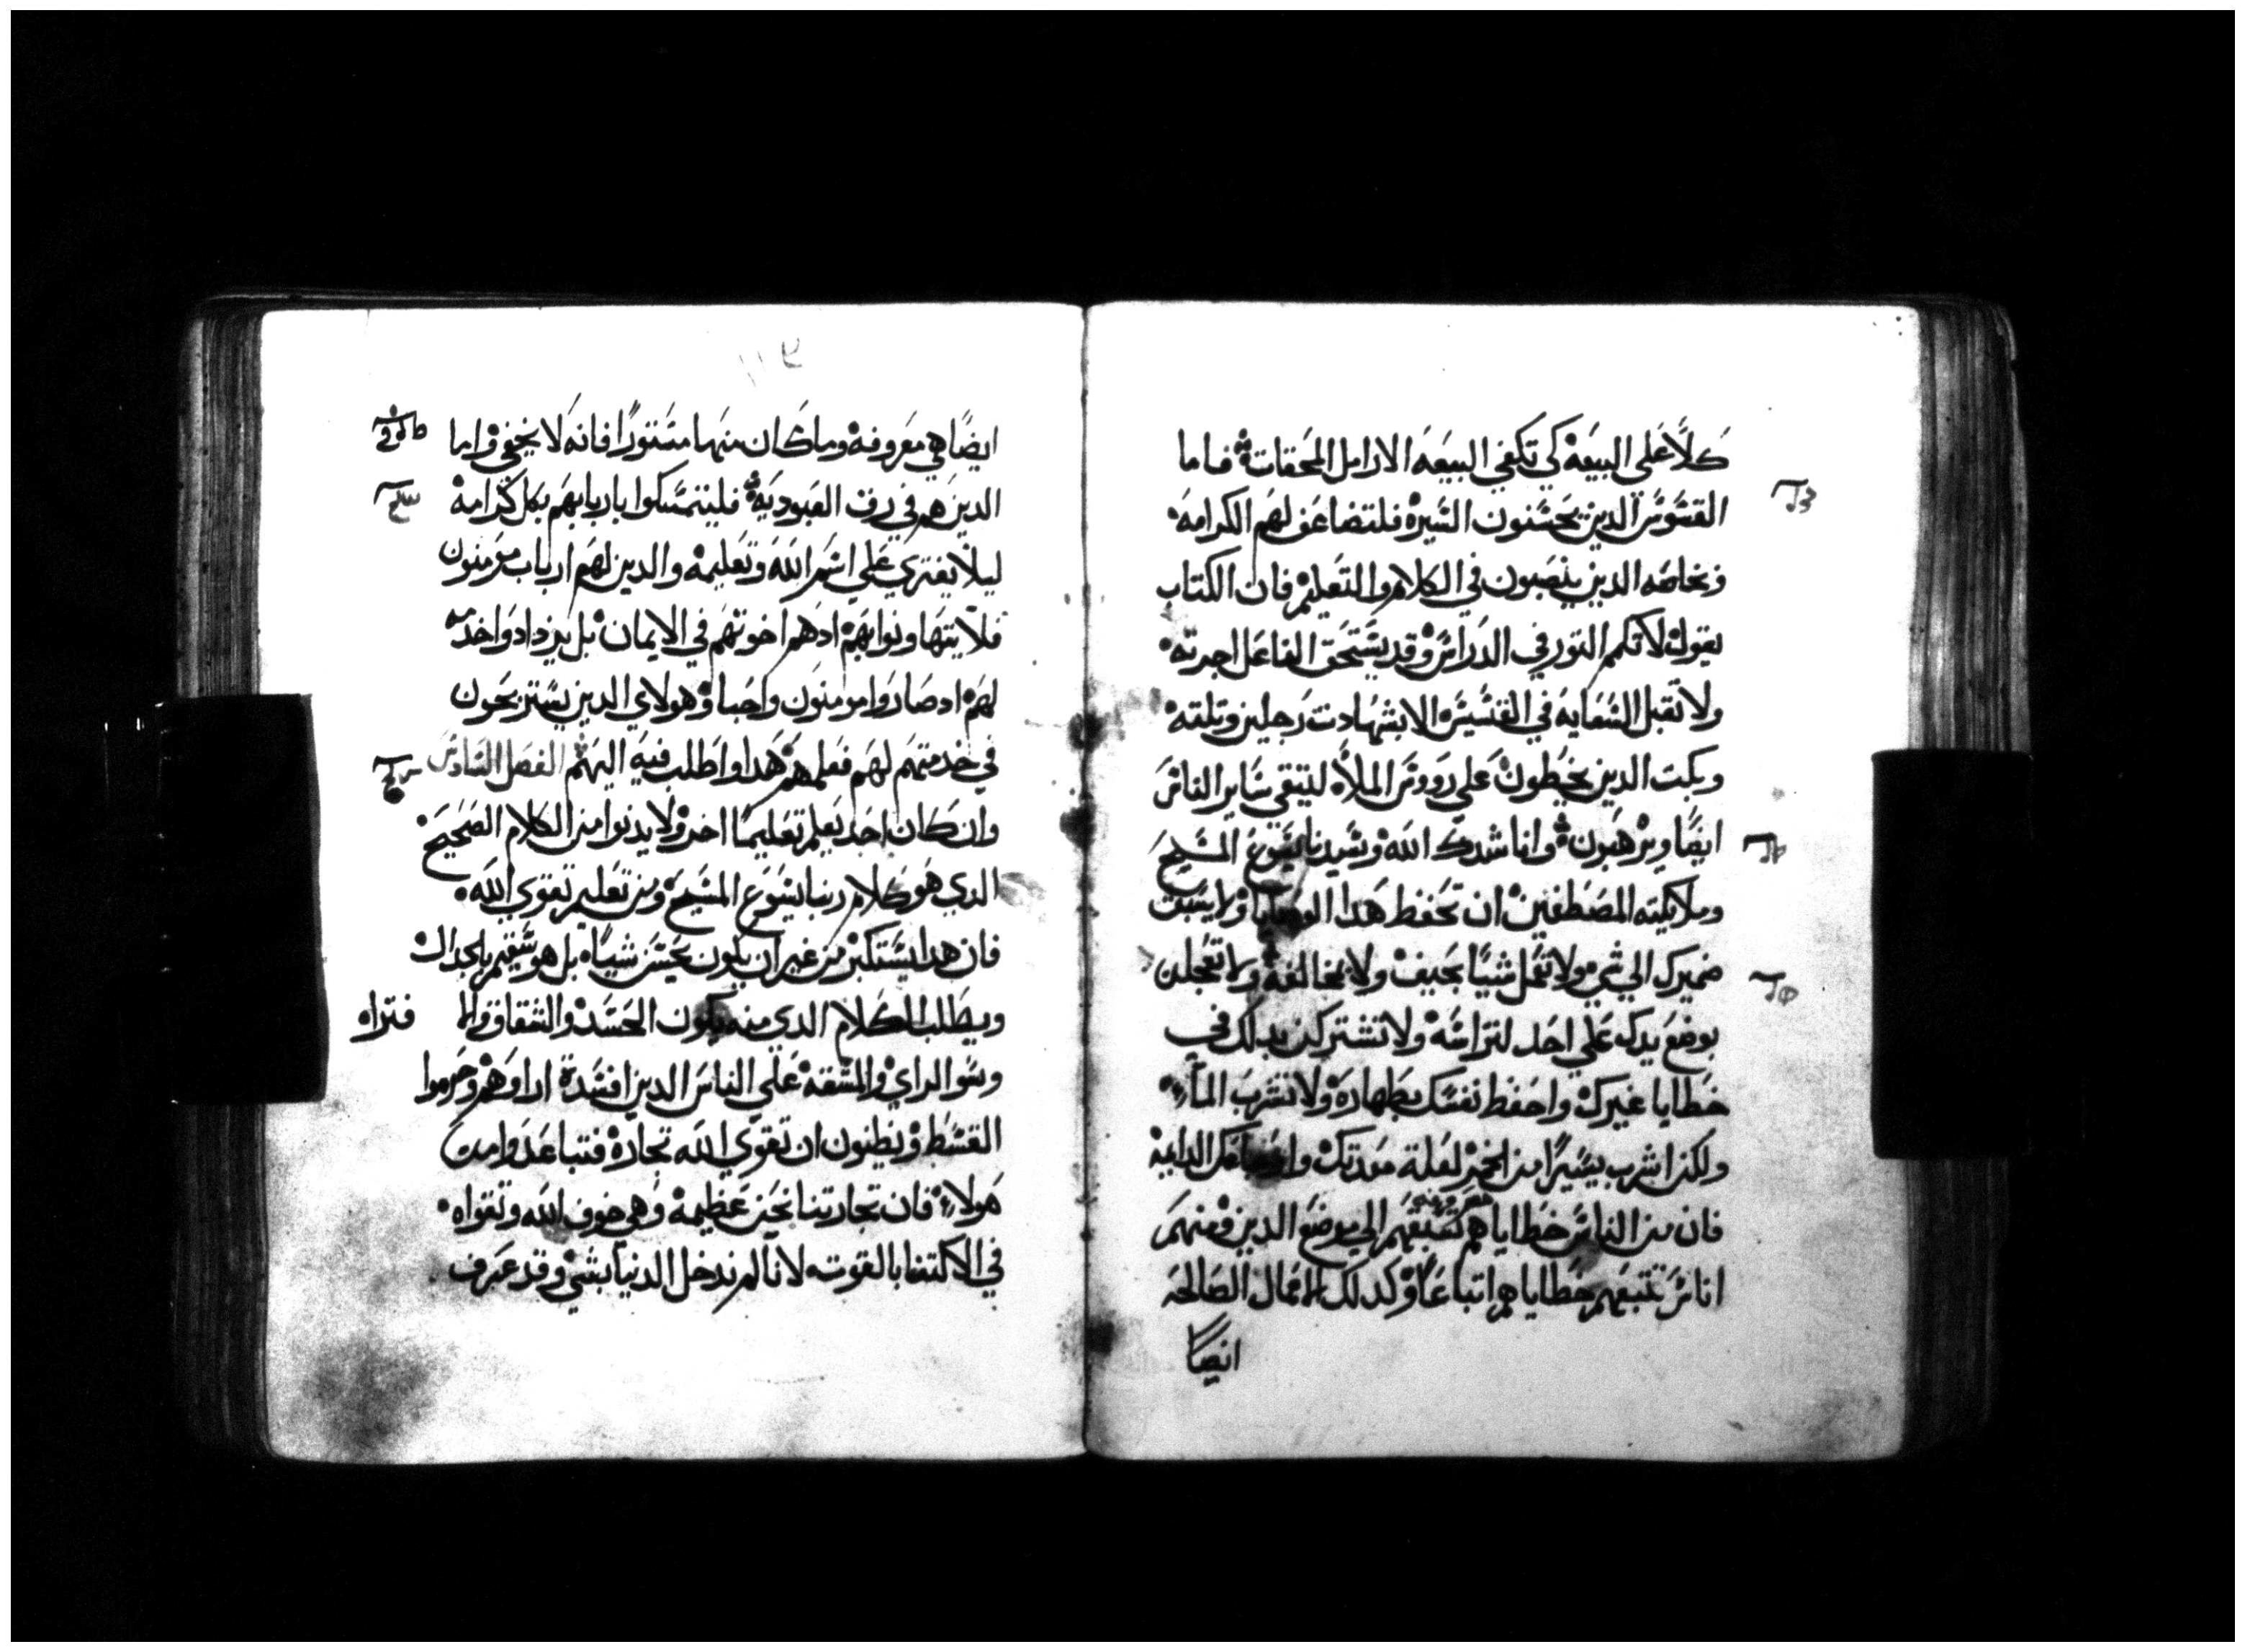 كلاً على البيعه كي تكفي البيعه الارامل المحقات فاما
القسوس الدين يحسنون السيرة فلتضاعف لهم الكرامه
وبخاصه الدين ينصبون في الكلام والتعليم فان الكتاب
يقول لا تكم التور في الدراس وقد يستحق الفاعل اجرته
ولا تقبل السعايه في القسيس الا بشهادت رجلين وتلته
وبكت الدين يخطون على رووس الملا ليتقي ساير الناس
ايضًا ويرهبون وانا شدك الله وسيدنا يسوع المسيح
وملايكته المصطفين ان تحفظ هدا الوصايا ولا يسبق
ضميرك الي شي ولا تعمل شيًا بحيف ولا بمخالفه ولا تعجلن
بوضع يدك علي احد لتراسه ولا تشتركن بدلك في
خطايا غيرك واحفظ نفسك بطهارة ولا تشرب الماء
ولكن اشرب يسيرًا من الخمر لعلة معدتك وامراضك الدايمه
فان من الناس خطاياهم تسبقهم الي موضع الدين ومنهم
اناس تتبعهم خطاياهم اتباعًا وكدلك الاعمال الصالحه
ايضًا
ايضًا هي معروفه وما كان منها مستورًا فانه لا يخفي واما
الدين هم في رق العبوديه فليتمسكوا باربابهم بكل كرامه
ليلا يفتري علي اسم الله وتعليمه والدين لهم ارباب مومنون
فلا يتهاونوا بهم ادهم اخوتهم في الايمان بل يزدادوا خدمه
لهم اد صاروا مومنون واحبا وهولاي الدين يستريحون
في خدمتهم لهم فعلمهم هدا واطلب فيه اليهم الفصل السادس
وان كان احد يعلم تعليمًا اخر ولا يدنوا من الكلام الصحيح
الدي هو كلام ربنا يسوع المسيح ومن تعليم تقوي الله
فان هدا يستكبر من غير ان يكون يحسن شياه بل هو سقيم بالجدال
ويطلب الكلام الدي منه يكون الحسد والشقاق والا فتراه
وسو الراي والمشقه علي الناس الدين افسدة اراوهم وحرموا
القسط ويظنون ان تقوي الله تجارة فتباعد وامن
هولاء فان تجارتنا نحن عظيمه وهي خوف الله وتقواه
في الاكتفا بالقوت لانا لم ندخل الدنيا بشي وقد عرف